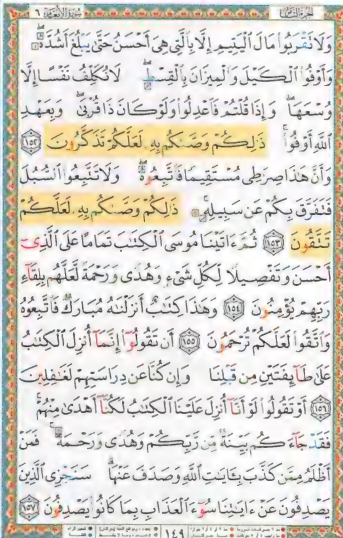 الجزء الثامن سورة الأنعام ٦
وَلَا تَقْرَبُوا۟ مَالَ ٱلْيَتِيمِ إِلَّا بِٱلَّتِى هِىَ أَحْسَنُ حَتَّىٰ يَبْلُغَ أَشُدَّهُۥ
وَأَوْفُوا۟ ٱلْكَيْلَ وَٱلْمِيزَانَ بِٱلْقِسْطِ لَا نُكَلِّفُ نَفْسًا إِلَّا
وُسْعَهَا وَإِذَا قُلْتُمْ فَٱعْدِلُوا۟ وَلَوْ كَانَ ذَا قُرْبَىٰ وَبِعَهْدِ
ٱللَّهِ أَوْفُوا۟ ذَٰلِكُمْ وَصَّىٰكُم بِهِۦ لَعَلَّكُمْ تَذَكَّرُونَ ١٥٢
وَأَنَّ هَٰذَا صِرَٰطِى مُسْتَقِيمًا فَٱتَّبِعُوهُ وَلَا تَتَّبِعُوا۟ ٱلسُّبُلَ
فَتَفَرَّقَ بِكُمْ عَن سَبِيلِهِۦ ذَٰلِكُمْ وَصَّىٰكُم بِهِۦ لَعَلَّكُمْ
تَتَّقُونَ ١٥٣ ثُمَّ ءَاتَيْنَا مُوسَى ٱلْكِتَٰبَ تَمَامًا عَلَى ٱلَّذِىٓ
أَحْسَنَ وَتَفْصِيلًا لِّكُلِّ شَىْءٍ وَهُدًى وَرَحْمَةً لَّعَلَّهُم بِلِقَآءِ
رَبِّهِمْ يُؤْمِنُونَ ١٥٤ وَهَٰذَا كِتَٰبٌ أَنزَلْنَٰهُ مُبَارَكٌ فَٱتَّبِعُوهُ
وَٱتَّقُوا۟ لَعَلَّكُمْ تُرْحَمُونَ ١٥٥ أَن تَقُولُوٓا۟ إِنَّمَآ أُنزِلَ ٱلْكِتَٰبُ
عَلَىٰ طَآئِفَتَيْنِ مِن قَبْلِنَا وَإِن كُنَّا عَن دِرَاسَتِهِمْ لَغَٰفِلِينَ
١٥٦ أَوْ تَقُولُوا۟ لَوْ أَنَّآ أُنزِلَ عَلَيْنَا ٱلْكِتَٰبُ لَكُنَّآ أَهْدَىٰ مِنْهُمْ
فَقَدْ جَآءَكُم بَيِّنَةٌ مِّن رَّبِّكُمْ وَهُدًى وَرَحْمَةٌ فَمَنْ
أَظْلَمُ مِمَّن كَذَّبَ بِـَٔايَٰتِ ٱللَّهِ وَصَدَفَ عَنْهَا سَنَجْزِى ٱلَّذِينَ
يَصْدِفُونَ عَنْ ءَايَٰتِنَا سُوٓءَ ٱلْعَذَابِ بِمَا كَانُوا۟ يَصْدِفُونَ ١٥٧
١٤٩